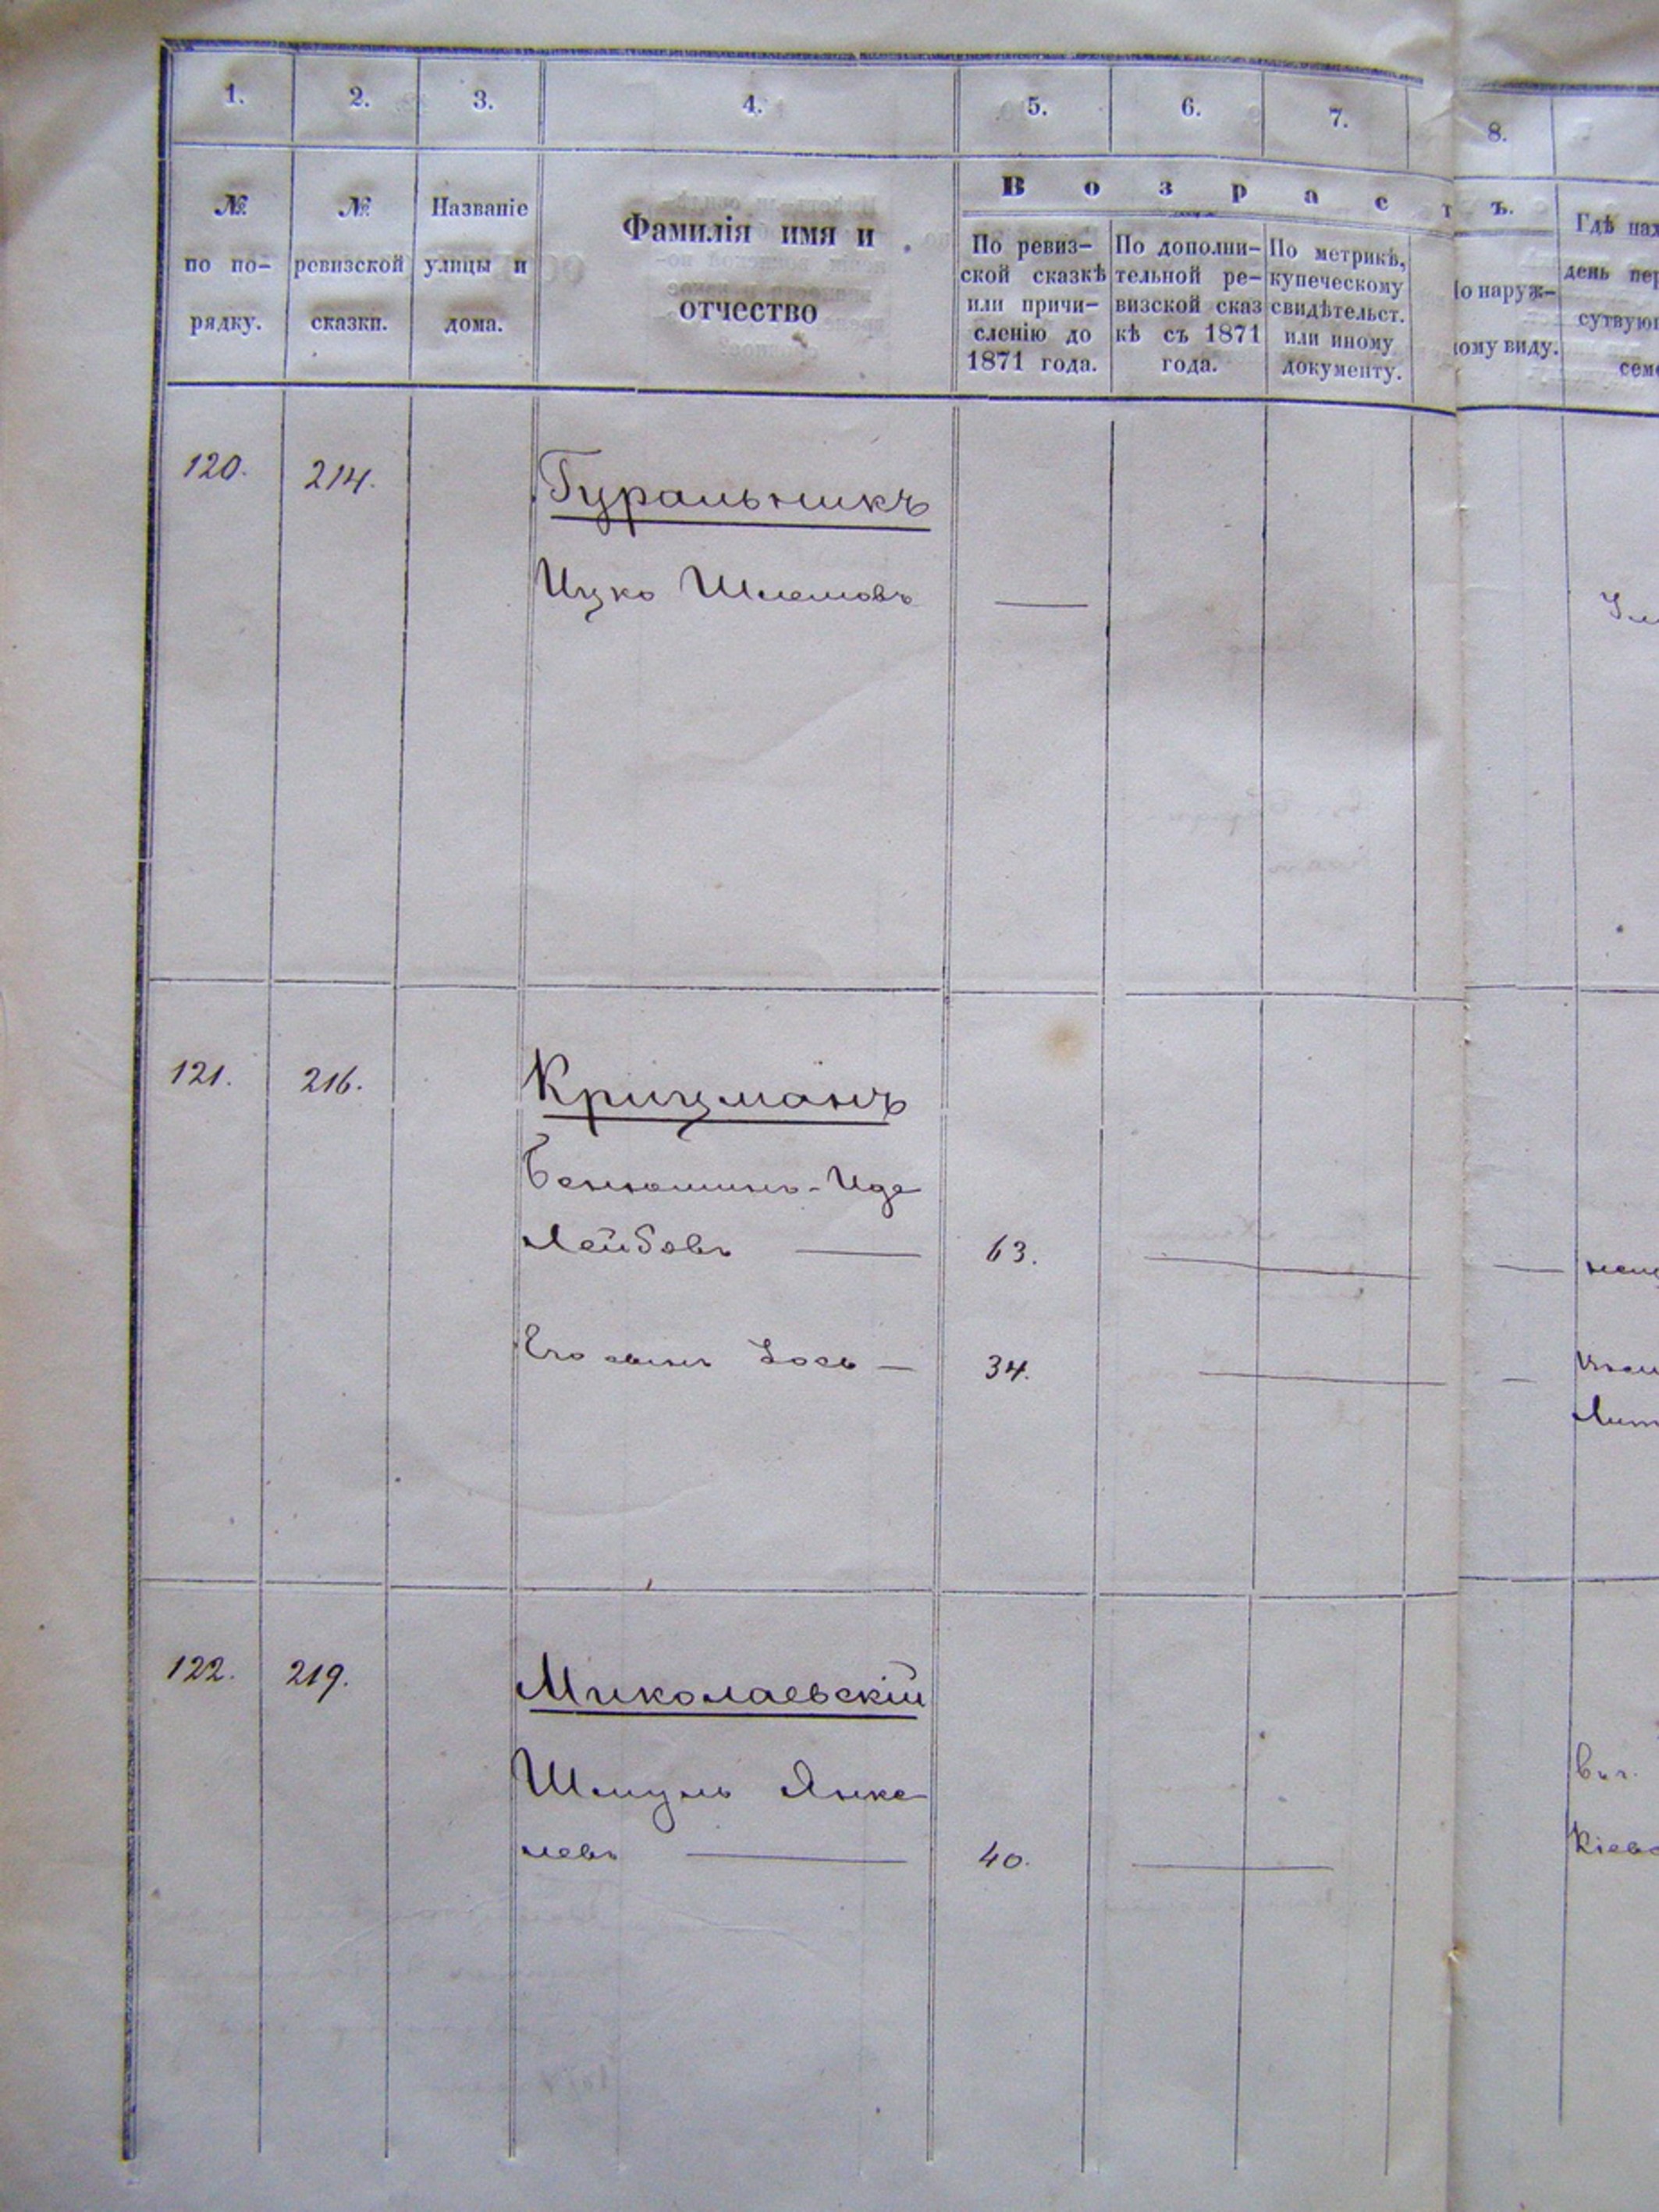 1. 2. 3. 4. 5. 6. 7. 8.
В о з р а с т ъ.
№ по порядку.
№ ревизской сказки.
Названіе улицы и дома.
Фамилія имя и
отчество
По ревиз-
ской сказкѣ
или причи-
сленію до
1871 года.
По дополни-
тельной ре-
визской сказ
кѣ съ 1871
года.
По метрикѣ,
купеческому
свидѣтельст.
или иному
документу.
о наруж-
ому виду.
Гдѣ нах
день пер
сутвую
семе
120. 214. Гуральникъ
Ицко Шлемовъ —
121. 216. Крицманъ
Бенюминъ-Иде
Лейбовъ — 63. —
Его сынъ Іось — 34. —
Лит
122. 219. Миколаевскій
Шмуль Янке
левъ — 40. —
Кіев